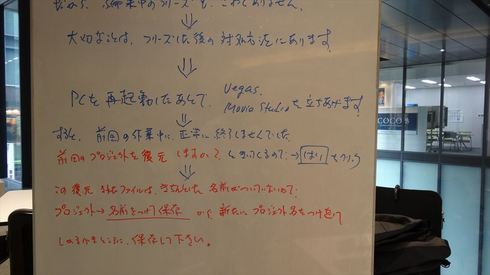 だから、編集中のフリーズも、こわくありません。
大切なことは、フリーズした後の対処方法にあります。
PCを再起動したあとで、Vegas.
Movie Studio を立ちあげます
すると、前回の作業中に、正常に終了しませんでした
前回のプロジェクトを復元しますか? とでてくるので、→ はい をクリック
この復元されたファイルは、きちんとした名前がついていないので、
プロジェクト → 名前をつけて保存 から 新たにプロジェクト名をつけ直して
保存して下さい。
COCO'S